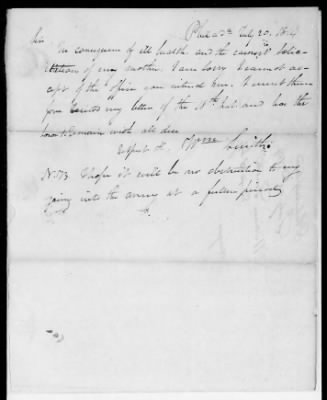 Philada. July 20. 1814
Sir
In consequence of ill health and the earnest solici-
tation of my mother. I am sorry I cannot ac-
cept of the office you intend me. I must there
fore my letter of the 14th Int and has the
honor to remain with all due
respect &c. Wm Smith
N.B. I hope it will be no obstruction to my
going into the army at a future period